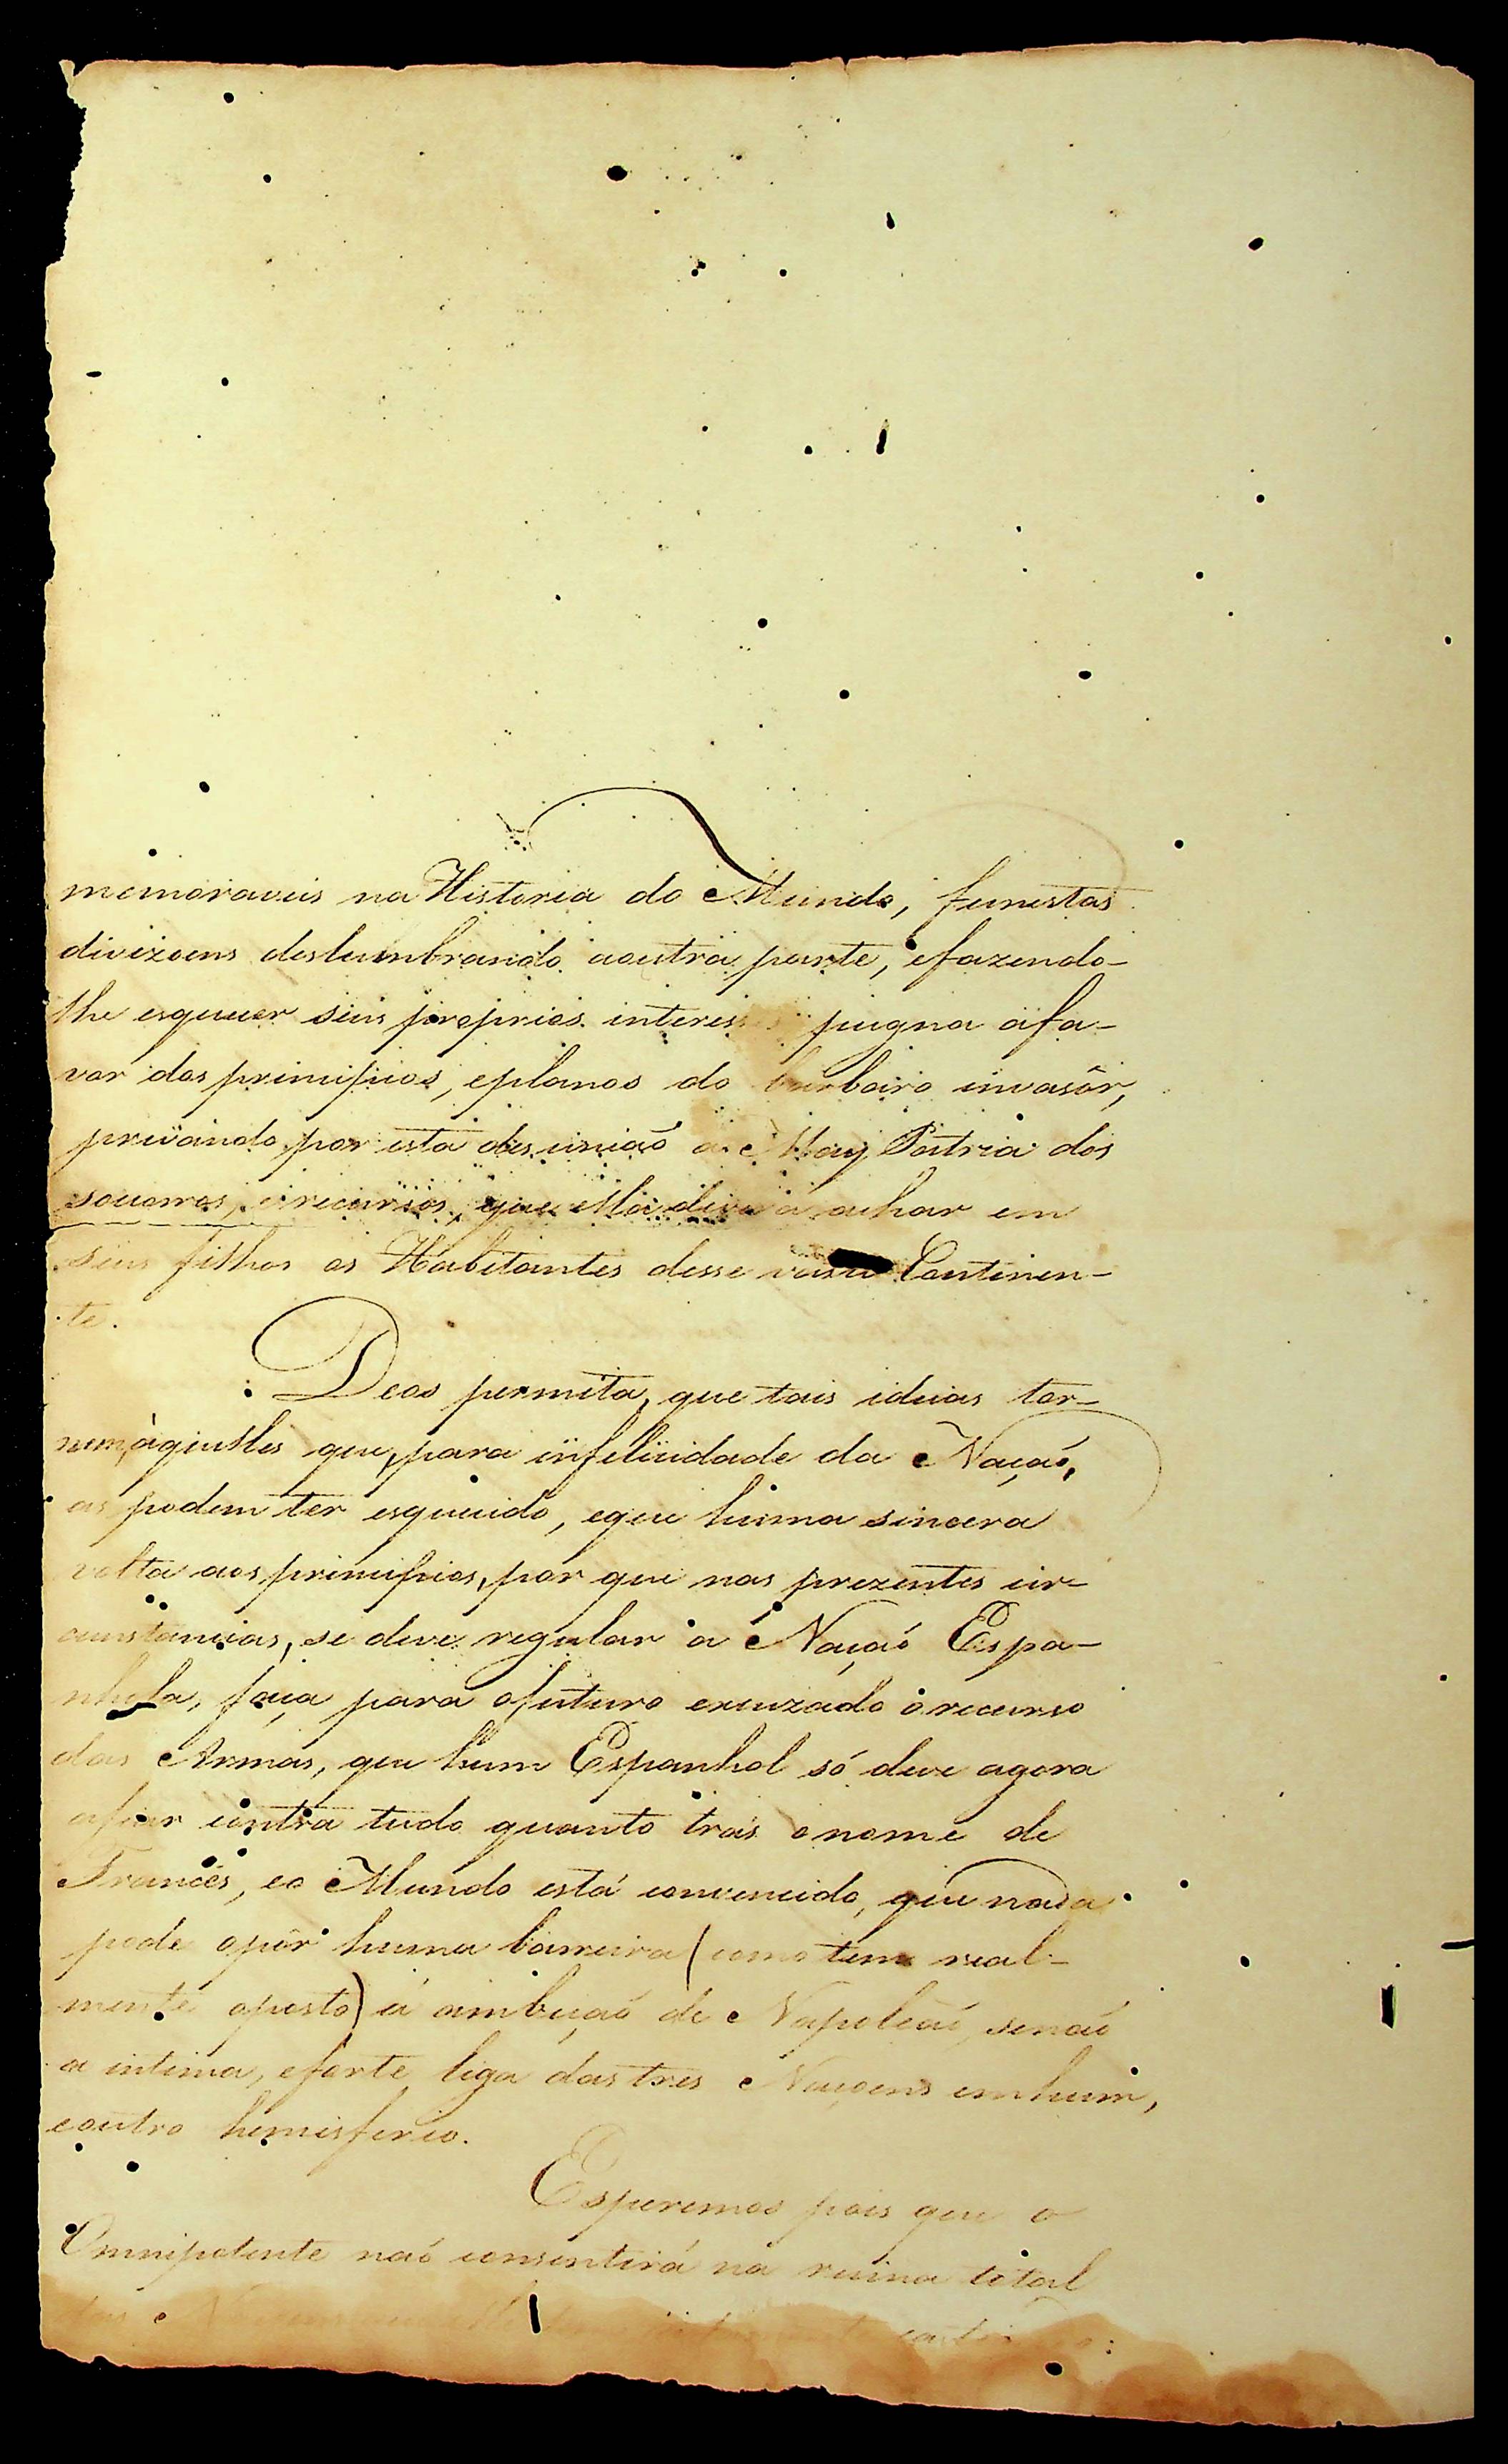 memoraveis na Historia do Mundo, funestas
divizoens deslumbrando aoutra parte, efazendo-
lhe esquecer seus proprios pugna afa-
vor dos principios, eplanos do barbaro invasôr,
privando por esta desuniaõ a May Patria dos
socorros, erecursos, que Ella devia achar em
seus filhos os Habitantes desse vasto Continen-
te.
Deos permita, que tais ideias tor-
nem áquelles que, para infelicidade da Naçaõ,
as podem ter esquecido, eque huma sincera
volta aos principios, por que nas prezentes cir-
cunstancias, se deve regular a Naçaõ Espa-
nhola, faça para ofuturo escuzado orecurso
das Armas, que hum Espanhol só deve agora
afiar contra tudo quanto tras onome de
Francês, eo Mundo está convencido, que nada
pode opôr huma barreira (como tem real-
mente oposto) á ambiçaõ de Napoleaõ, senaõ
a intima, eforte liga das tres Naçoens emhum,
eoutro hemisferio.
Esperemos pois que o
Omnipotente naõ consentirá na ruina total
das